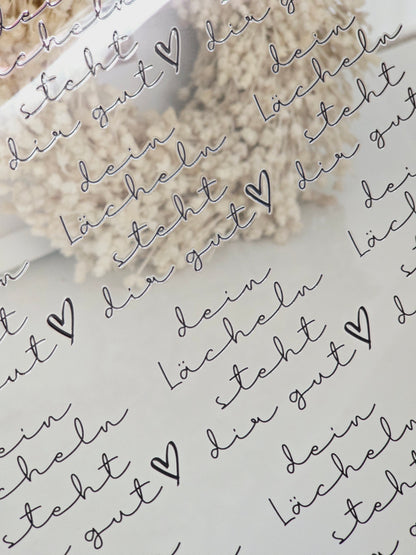 dein
Lächeln
steht
dir gut
dein
Lächeln
steht
dir gut
dein
Lächeln
steht
dir gut
dein
Lächeln
steht
dir gut
dein
Lächeln
steht
dir gut
dein
Lächeln
steht
gut
dein
Lächeln
steht
dein
Lächeln